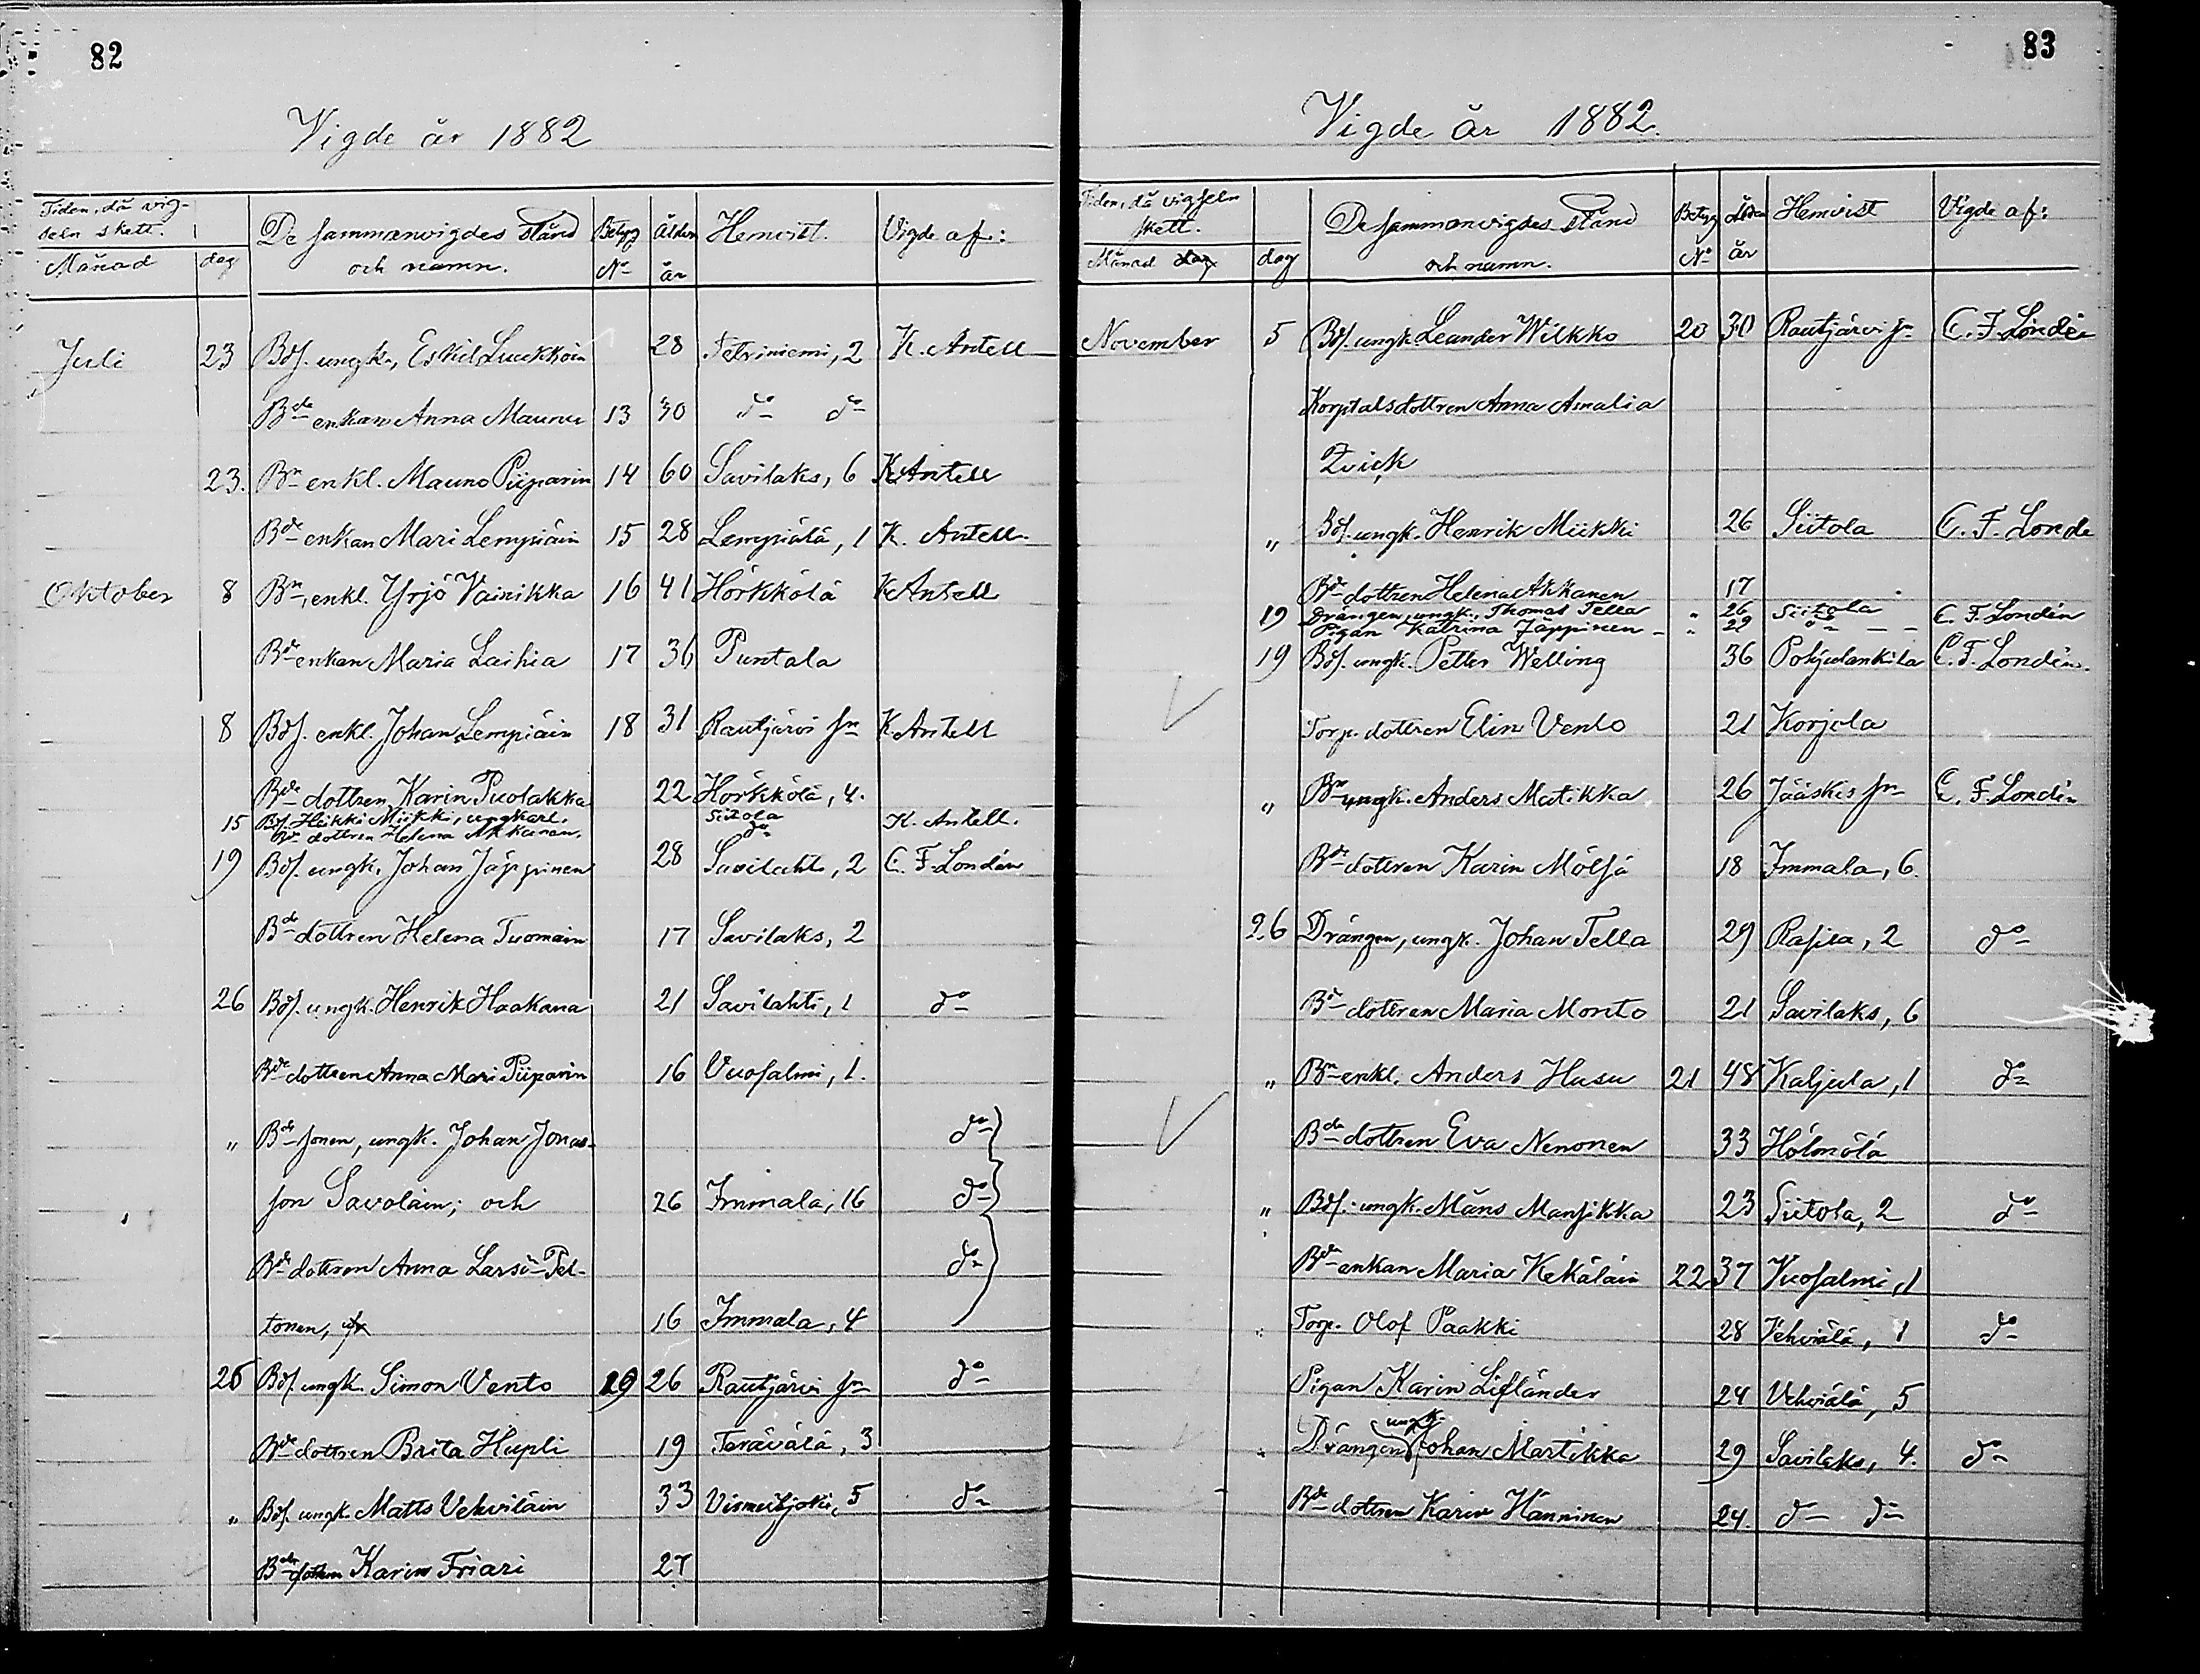 82
Vigde år 1882
Tiden, då vig-
seln skett.
Månad dag De sammanvigdes stånd
och namn. Betyg
No Ålder
år Hemvist. Vigde af:
Juli 23 Bds. ungk., Eskil Luukkoin 28 Petriniemi, 2 K. Antell
Bde enkan Anna Maunu 13 30 do do
23. Bn enkl. Mauno Piiparin 14 60 Savilaks, 6 K Antell
Bde enkan Mari Lempiäin 15 28 Lempiälä, 1 K. Antell
Oktober 8 Bn, enkl. Yrjö Vainikka 16 41 Hörkkölä K Antell
Bde enkan Maria Laihia 17 36 Puntala
8 Bds. enkl. Johan Lempiäin 18 31 Rautjärvi sn K. Antell
Bde dottren Karin Puolakka 22 Hörkkölä, 4.
15 Bds. Heikki Miikki, ungkarl. Siitola K. Antell.
Bde dottren Helena Akkanen. do
19 Bds. ungk. Johan Jäppinen 28 Savilahti, 2 C. F. Londén
Bde dottren Helena Tuomain 17 Savilaks, 2
26 Bds. ungk. Henrik Haakana 21 Savilahti, 1 do
Bde dottren Anna Mari Piiparin 16 Vuosalmi, 1.
" Bde sonen, ungk. Johan Jonas- do
son Savolain; och 26 Immala, 16 do
Bde dottren Anna Larsd. Pel- do
tonen, 16 Immala, 4
26 Bds. ungk. Simon Vento 19 26 Rautjärvi sn do
Bde dottren Brita Hupli 19 Terävälä, 3
" Bds. ungk. Matts Vehviläin 33 Virmutjoki, 5 do
Bde dottren Karin Friari 27
83
Vigde år 1882.
Tiden, då vigseln
skett.
Månad dag dag De sammanvigdes stånd
och namn. Betyg
No Ålder
år Hemvist Vigde af:
November 5 Bds. ungk. Leander Wilkko 20 30 Rautjärvi sn C. F. Londén
Korptalsdottren Anna Amalia
Zvick
" Bds. ungk. Henrik Miikki 26 Siitola C. F. Londe
Bde dottren Helena Akkanen 17
19 Drängen, ungk., Thomas Tella " 26 Siitola C. F. Londén
Pigan Katrina Jäppinen - " 29 do - -
19 Bds. ungk. Petter Welling 36 Pohjalankila C. F. Londén.
Torp. dottren Elin Vento 21 Korjola
" Bn ungk. Anders Matikka 26 Jääskis sn C. F. Londén
Bde dottren Karin Mölsä 18 Immala, 6.
26 Drängen, ungk. Johan Tella 29 Rasila, 2 do
Bde dottren Maria Monto 21 Savilaks, 6
" Bn enkl. Anders Husu 21 48 Kaljula, 1 do
Bde dottren Eva Nenonen 33 Hölmölä
" Bds. ungk. Måns Mansikka 23 Siitola, 2 do
Bde enkan Maria Kekäläin 22 37 Vuosalmi, 1
" Torp. Olof Paakki 28 Vehviälä, 1 do
Pigan Karin Lifländer 24 Vehviälä, 5
ungk.
" Drängen Johan Martikka 29 Savilaks, 4. do
Bde dottren Karin Hänninen 24. do do